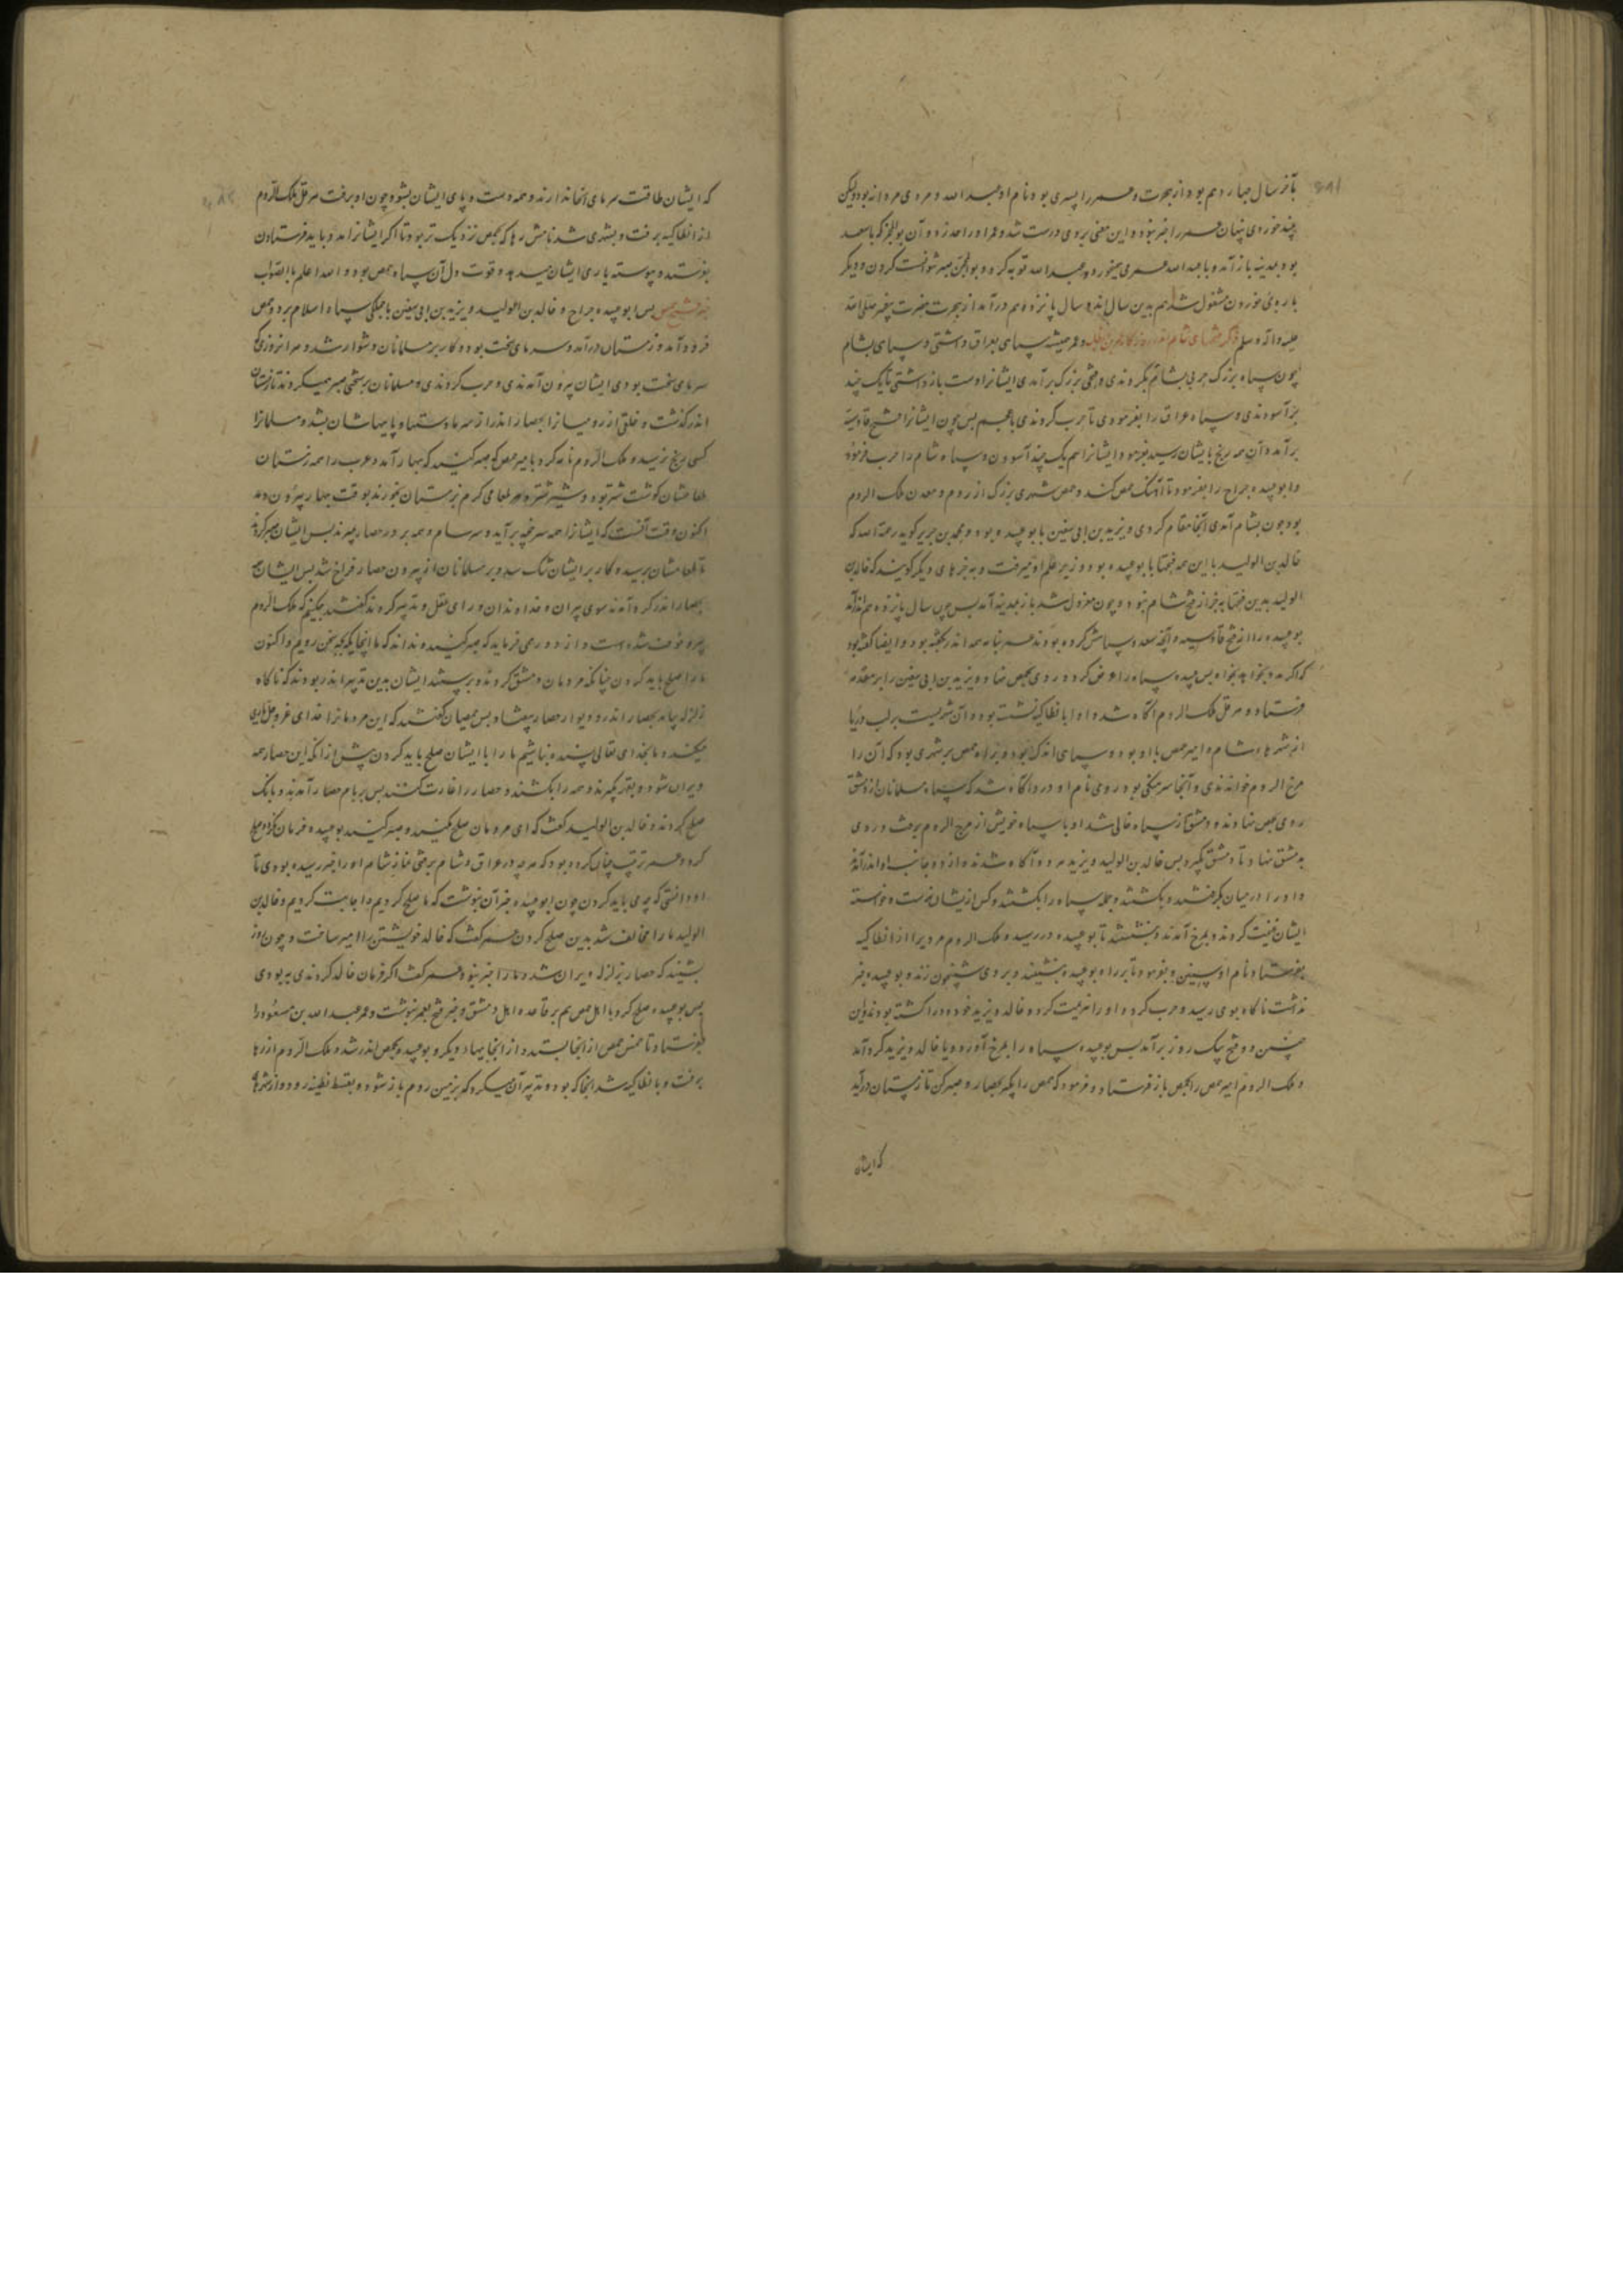 بآخر سال چهاردهم بود از هجرت و عمر را پسری بود نام او عبدالله و مردی مردانه بود ولیکن
می خوردی پنهان عمر را خبر نبود و این معنی بر وی درست شد و عمر او را حد زد و آن بو محجن که با سعد
بود بمدینه باز آمد و با عبدالله عمر می میخورد و عبدالله توبه کرد و بو محجن صبر نتوانست کردن و دیگر
باره می خوردن مشغول شد هم بدین سال اندر سال پانزدهم درآمد از هجرت حضرت پیغمبر صلی الله
علیه و آله و سلم ذکر فتحهای شام اندر روزگار عمر بن خطاب و عمر همیشه سپاهی بعراق داشتی و سپاهی بشام
چون سپاه بزرگ حربی بشام بکردندی و فتحی بزرگ برآمدی ایشانرا دست بازداشتی تا یک چند
برآسودندی و سپاه عراق را بفرمودی تا حرب کردندی با عجم پس چون ایشانرا فتح قادسیه
برآمد و آن همه رنج بایشان رسید بفرمود ایشانرا هم یک چند آسودن و سپاه شام را حرب فرمود
و ابو عبیده جراح را بفرمود تا آهنگ حمص کند و حمص شهری بزرگ از روم و معدن ملک الروم
بود چون بشام آمدی آنجا مقام کردی و یزید بن ابی سفین با بو عبیده بود و محمد بن جریر گوید رحمة الله که
خالد بن الولید با این همه فتحها با بو عبیده بود و زیر علم او میرفت و به خبرهای دیگر گویند که خالد بن
الولید بدین فتحها به جز از فتح شام نبود و چون معزول شد باز بمدینه آمد پس چون سال پانزدهم اندر آمد
بو عبیده را از فتح قادسیه و آنچه سعد و سپاهش کرده بودند عمر بنامه همه اندر بگفته بود و ایضا گفته بود
که اگر مدد بخواهد بخواه پس بو عبیده سپاه را عرض کرد و روی بحمص نهاد و یزید بن ابی سفین را بر مقدمه
فرستاد و هرقل ملک الروم آگاه شد و او بانطاکیه نشسته بود و آن شهریست بر لب دریا
از شهرهای شام و امیر حمص با او بود و سپاهی اندک بود و بر راه حمص بر شهری بود که آن را
مرج الروم خواندندی و آنجا سرهنگی بود رومی نام او درد آگاه شد که سپاه مسلمانان از دمشق
روی بحمص نهادند و دمشق از سپاه خالی شد او با سپاه خویش از مرج الروم برفت و روی
بدمشق نهاد تا دمشق بگیرد پس خالد بن الولید و یزید هر دو آگاه شدند و از دو جانب او اندر آمدند
و او را در میان بگرفتند و بکشتند و جمله سپاه را بکشتند و کس از یشان نرست و خواسته
ایشان غنیمت کردند و بمرج آمدند و بنشستند تا بو عبیده در رسید و ملک الروم مردی را از انطاکیه
بفرستاد نام او و بفرمود تا بر راه بو عبیده بنشیند و بروی شبیخون زند و بو عبیده خبر
نداشت ناگاه بوی رسید و حرب کرد و او را هزیمت کرد و خالد و یزید خود درد را کشته بودند و این
و دو فتح بیک روز برآمد پس بو عبیده سپاه را بمرج آورد و با خالد و یزید گرد آمد
و ملک الروم امیر حمص را بحمص باز فرستاد و فرمود که حمص را بگیر بحصار و صبر کن تا زمستان درآید
که ایشان
که ایشان طاقت سرمای آنجا ندارند و همه دست و پای ایشان بشود چون او برفت هرقل ملک الروم
از انطاکیه برفت و بشهری شد نامش رها که بحمص نزدیک تر بود تا اگر ایشانرا مدد باید فرستادن
بفرستد و پیوسته یاری ایشان میدهد و قوت دل آن سپاه حمص بود و الله اعلم بالصواب
خبر فتح حمص پس ابو عبیده جراح و خالد بن الولید و یزید بن ابی سفین با جملگی سپاه اسلام بر در حمص
فرود آمد و زمستان درآمد و سرمای سخت بود و کار بر مسلمانان دشوار شد و هر آنروزی که
سرمای سخت بودی ایشان بیرون آمدندی و حرب کردندی و مسلمانان بر سختی صبر همیکردند تا زمستان
اندر گذشت و خلق از رومیانرا بحصار اندر از سرما دستها و پایهاشان بشد و مسلمانرا
کسی رنج نرسید و ملک الروم نامه کرد بامیر حمص که صبر کنید که بهار آمد و عرب را همه زمستان
طعامشان گوشت شتر بود و شیر شتر و هر طعامی گرم بزمستان بخورند بوقت بهار بیرون دمد
اکنون وقت آنست که ایشانرا همه سرخچه برآید و سرسام و همه بر در حصار بمیرند پس ایشان صبر کردند
تا طعامشان برسید و کار بر ایشان تنگ شد و بر مسلمانان از بیرون حصار فراخ شد پس ایشان همه
بحصار اندر گرد آمدند سوی پیران و خداوندان و رای عقل و تدبیر کردند گفتند چکنیم که ملک الروم
پیر و خرف شده است و از دور می فرماید که صبر کنید و نداند که ما اینجا چگونه بسختی رویم و اکنون
ما را صلح باید کردن چنانکه مردمان دمشق کردند و برستند ایشان بدین تدبیر اندر بودند که ناگاه
زلزله بیامد بحصار اندر و دیوار حصار بیفتاد پس حمصیان گفتند که این مردمانرا خدای عز و جل یاری
میکند و ما بخدای تعالی بسنده نباشیم ما را با ایشان صلح باید کردن پیش از آنکه این حصار همه
ویران شود و بقهر بگیرند و همه را بکشند و حصار را غارت کنند پس بر بام حصار آمدند و بانگ
صلح کردند و خالد بن الولید گفت که ای مردمان صلح مکنید و صبر کنید بو عبیده فرمان نکرد و صلح
کرد و عمر ترتیب چنان کرده بود که هر چه در عراق و شام برفتی نماز شام او را خبر رسیده بودی تا
او دانستی که چه می باید کردن چون ابو عبیده خبر آن بنوشت که ما صلح کردیم و اجابت کردیم و خالد بن
الولید ما را مخالف شد بدین صلح کردن عمر گفت که خالد خویشتن را امیر ساخت و چون روز
بشنید که حصار بزلزله ویران شد و ما را خبر نبود عمر گفت اگر فرمان خالد کردندی به بودی
پس بو عبیده صلح کرد با اهل حمص هم بر قاعده اهل دمشق و خبر فتح بعمر نبشت و عمر عبدالله بن مسعود را
بفرستاد تا خمس حمص از آنجا بستد و از آنجا بیامد و دیگر و بو عبیده بحمص اندر شد و ملک الروم از رها
برفت و بانطاکیه شد آنجا که بود و تدبیر آن میکرد که بزمین روم باز شود و بقسطنطنیه رود و از شهرهای